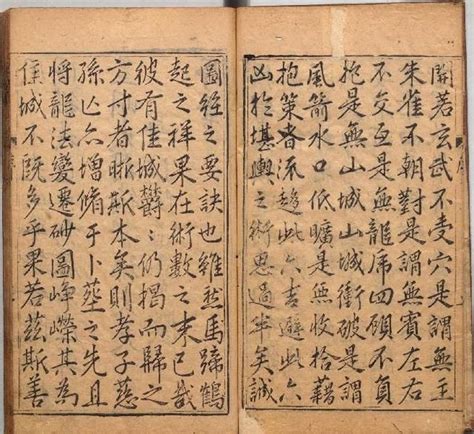 開若玄武不受穴是謂無主
朱雀不朝對是謂無賓左右
不交互是無龍虎四顧不負
抱是無山城山城衝破是謂
風箭水口低曠是無收拾藉
抱策者流趨此六吉避此六
凶於堪輿之術思過半矣誠
圖經之要訣也雖然馬蹄鶴
起之祥果在術數之末已哉
彼有佳城欝〻仍揭而歸之
方寸者晰斯本矣則孝子慈
孫亡亦增脩于卜塟之先且
將龍法變遷砂圖崢嶸其為
佳城不既多乎果若茲斯善